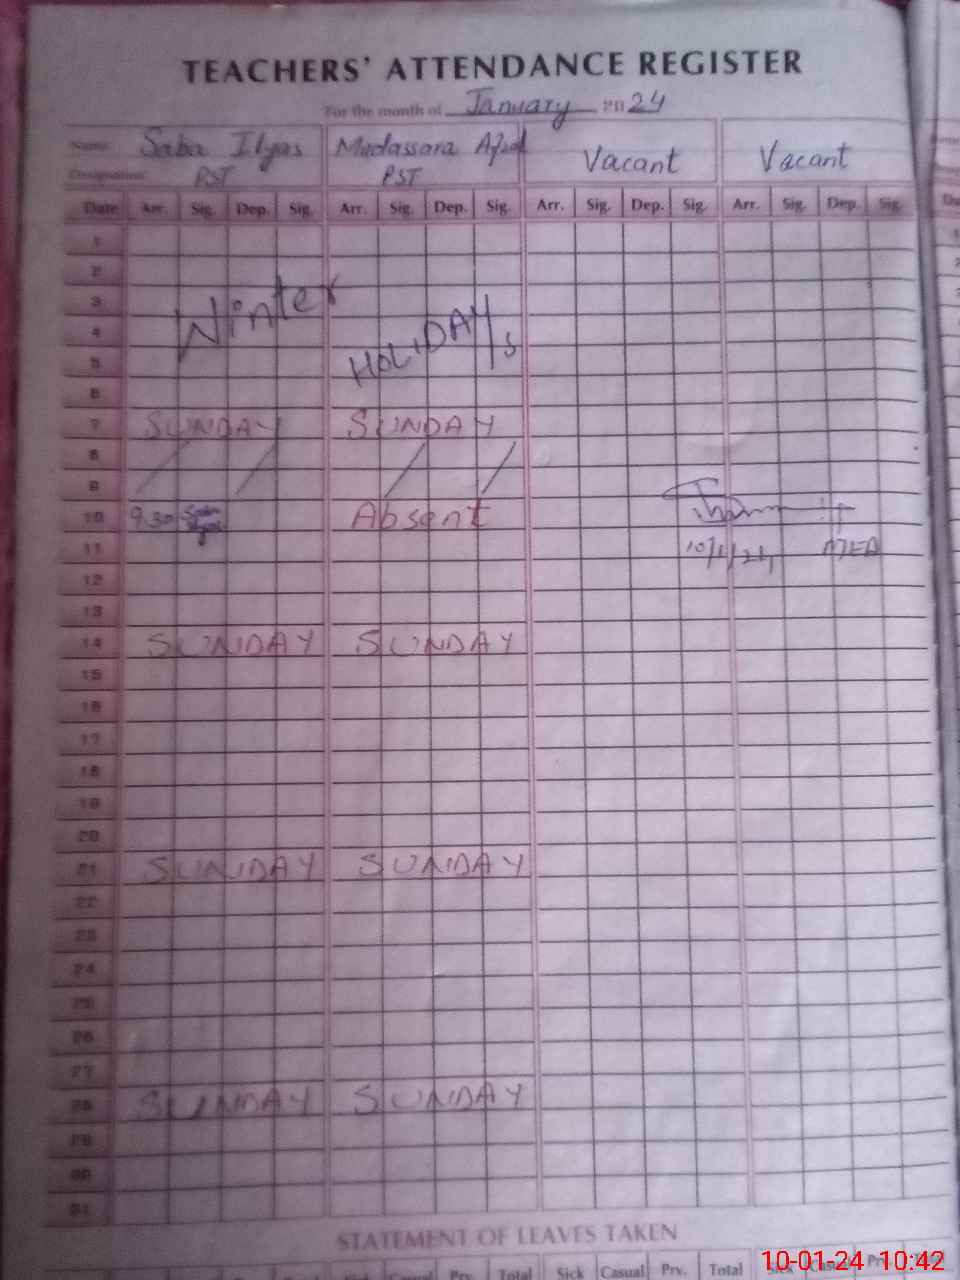 TEACHERS' ATTENDANCE REGISTER
For the month of January 2024
Name: Saba Ilyas Mudassara Afzal Vacant Vacant
Designation: PST PST
Date Arr. Sig. Dep. Sig. Arr. Sig. Dep. Sig. Arr. Sig. Dep. Sig. Arr. Sig. Dep. Sig.
1
2
3 Winter
4
5 HOLIDAYs
6
7 SUNDAY SUNDAY
8
9
10 9.30 Saba Ilyas Absent
11 10/1/24 AEO
12
13
14 SUNDAY SUNDAY
15
16
17
18
19
20
21 SUNDAY SUNDAY
22
23
24
25
26
27
28 SUNDAY SUNDAY
29
30
31
STATEMENT OF LEAVES TAKEN
Sick Casual Prv. Total Sick Casual Prv. Total Sick Casual Prv. Total
10-01-24 10:42